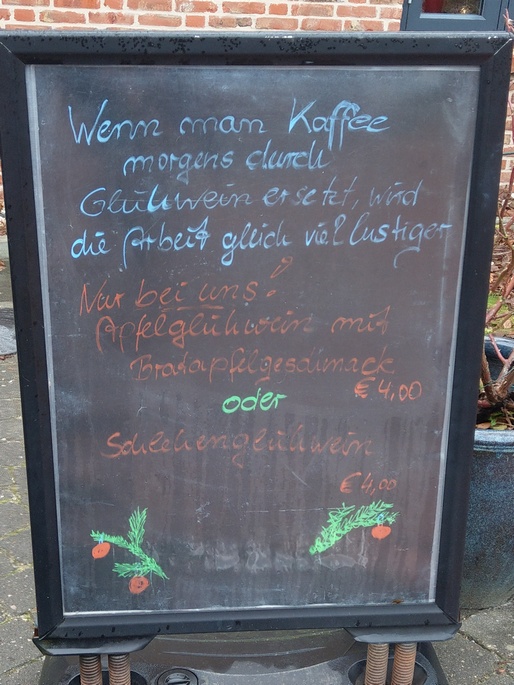 Wenn man Kaffee
morgens durch
Glühwein ersetzt, wird
die Arbeit gleich viel lustiger
Nur bei uns!
Apfelglühwein mit
Bratapfelgeschmack
€ 4,00
oder
Schlehenglühwein
€ 4,00